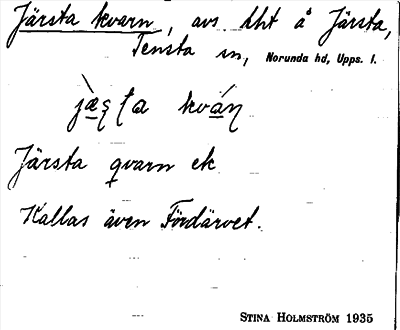 Järsta kvarn, avs. lht å Järsta,
Tensta sn, Norunda hd, Upps. l.
jæ̀ʂʈa kváɳ
Järsta qvarn ek
Kallas även Fördärvet.
STINA HOLMSTRÖM 1935